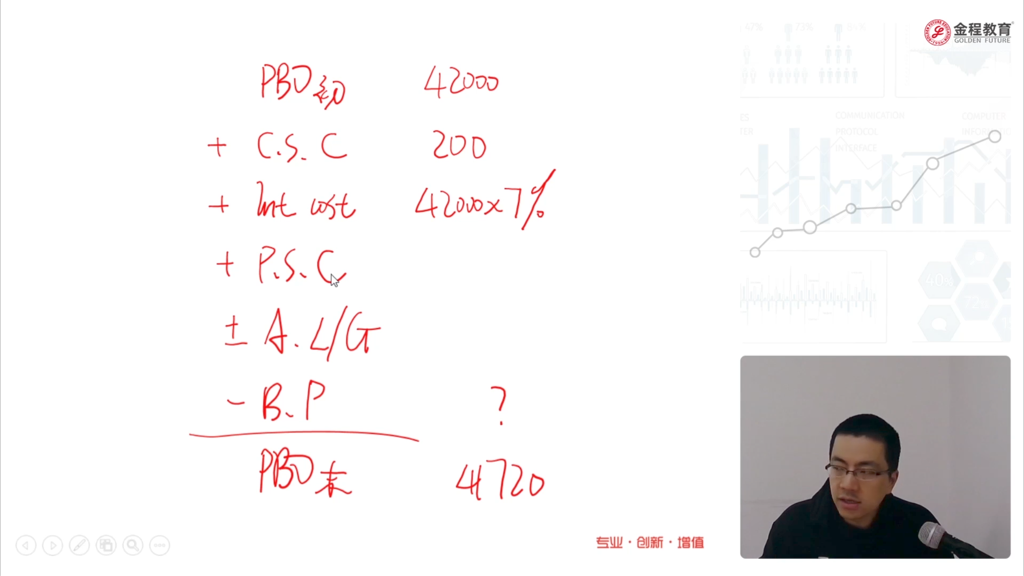 金程教育
GOLDEN FUTURE
PBO初 42000
+ C.S.C 200
+ Int cost 42000×7%
+ P.S.C
± A.L/G
- B.P ?
PBO末 41720
COMMUNICATION
PROTOCOL
INTERFACE
专业·创新·增值